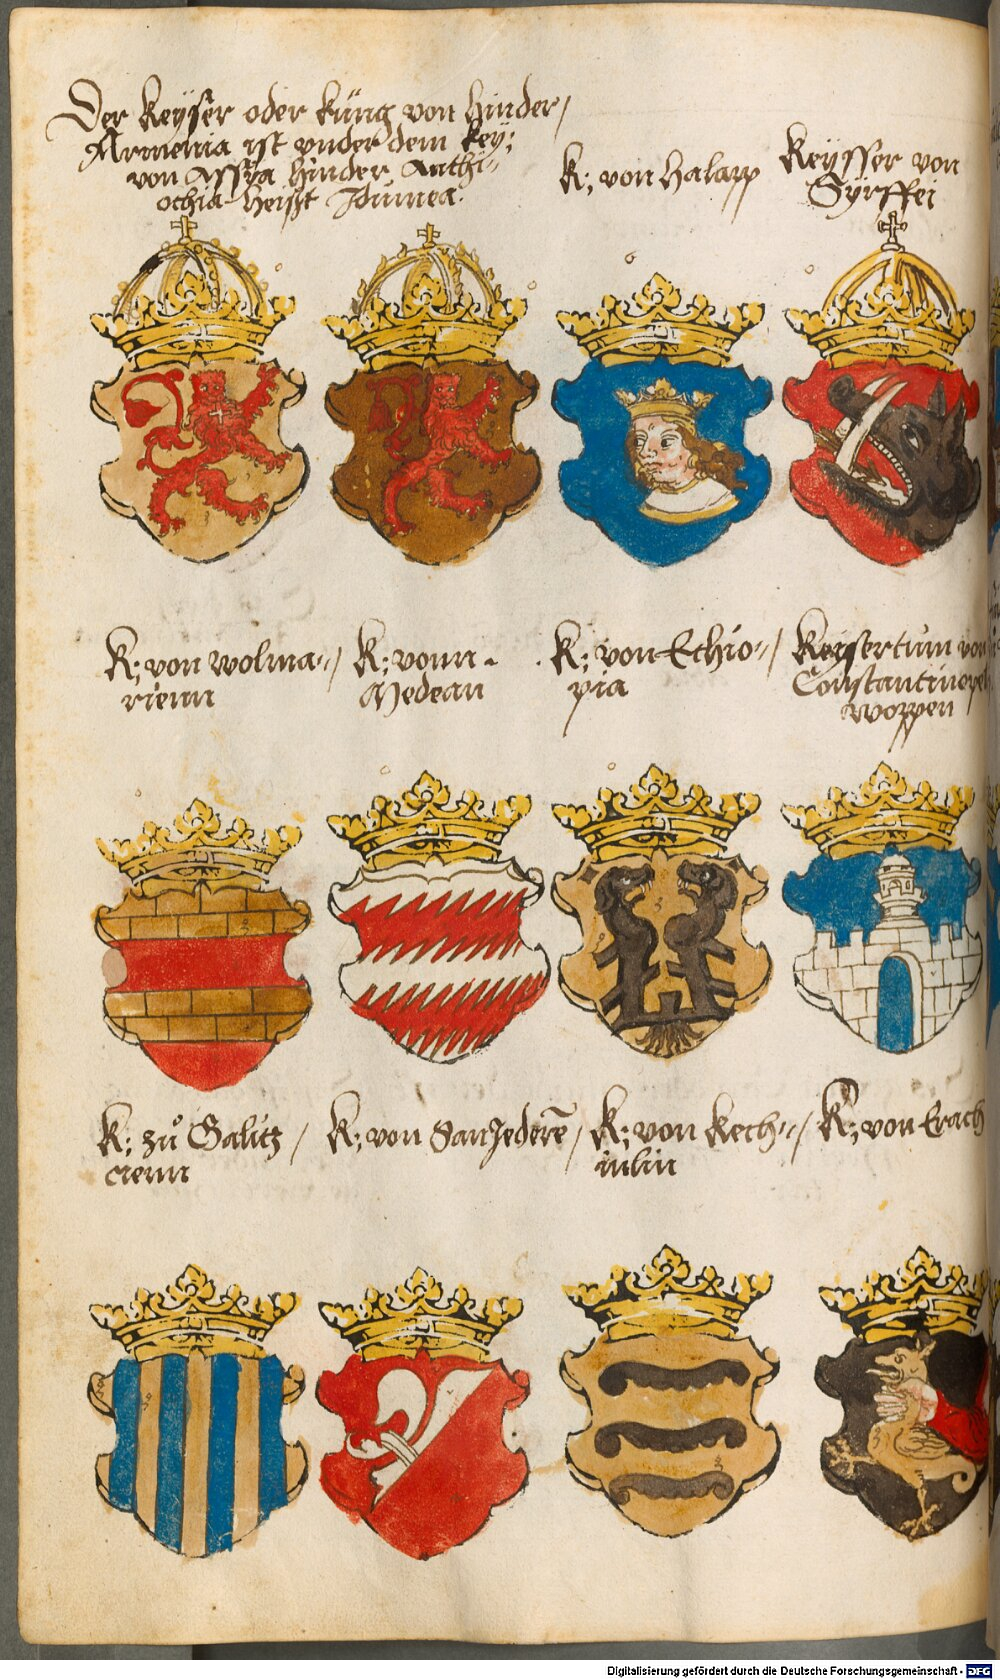 Der Keyser oder küng von hinder /
Armenia ist vnder dem key:
von Assya hinder Anthi-
ochia heisst Idumea.
K: von halapp
Keysser von
Syrffei
K: von wolma- /
rienn
K: vonn
Medean
K: von Ethio- /
pia
Keysertum von
Constantinopel
woppen
K: zů Galitz /
cienn
K: von SanJederē /
K: von Kech- /
inlin
K: von Erach
Digitalisierung gefördert durch die Deutsche Forschungsgemeinschaft - DFG